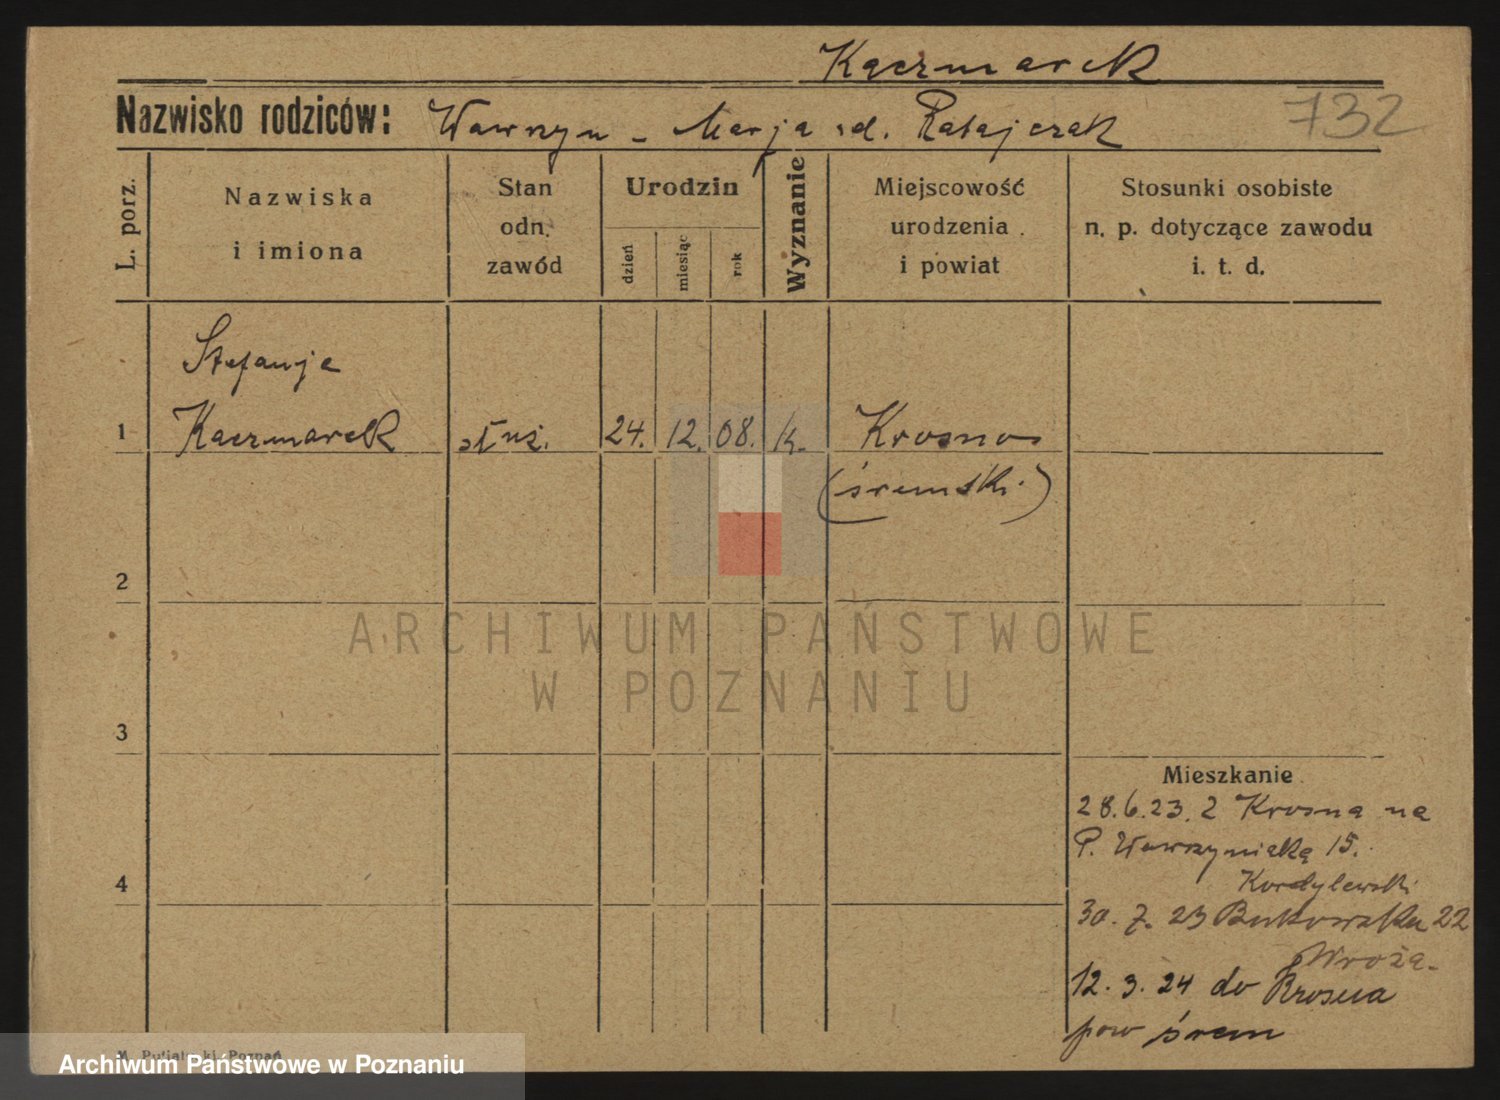 Kaczmarek
Nazwisko rodziców: Wawrzyn - Marja \d. Ratajczak
732
L. porz.
Nazwiska
i imiona
Stan
odn.
zawód
Urodzin
dzień
miesiąc
rok
Wyznanie
Miejscowość
urodzenia
i powiat
Stosunki osobiste
n. p. dotyczące zawodu
i. t. d.
Stefanja
1 Kaczmarek służ. 24. 12. 08. k. Krosno
(śremski)
2
ARCHIWUM PAŃSTWOWE
W POZNANIU
3
Mieszkanie
28.6.23. z Krosna na
P. Wawrzyniaka 15.
4
Kordylewski
30. 7. 23 Bukowska 22
Wroża.
12. 3. 24 do Krosna
pow śrem
Putiatycki Poznań
Archiwum Państwowe w Poznaniu